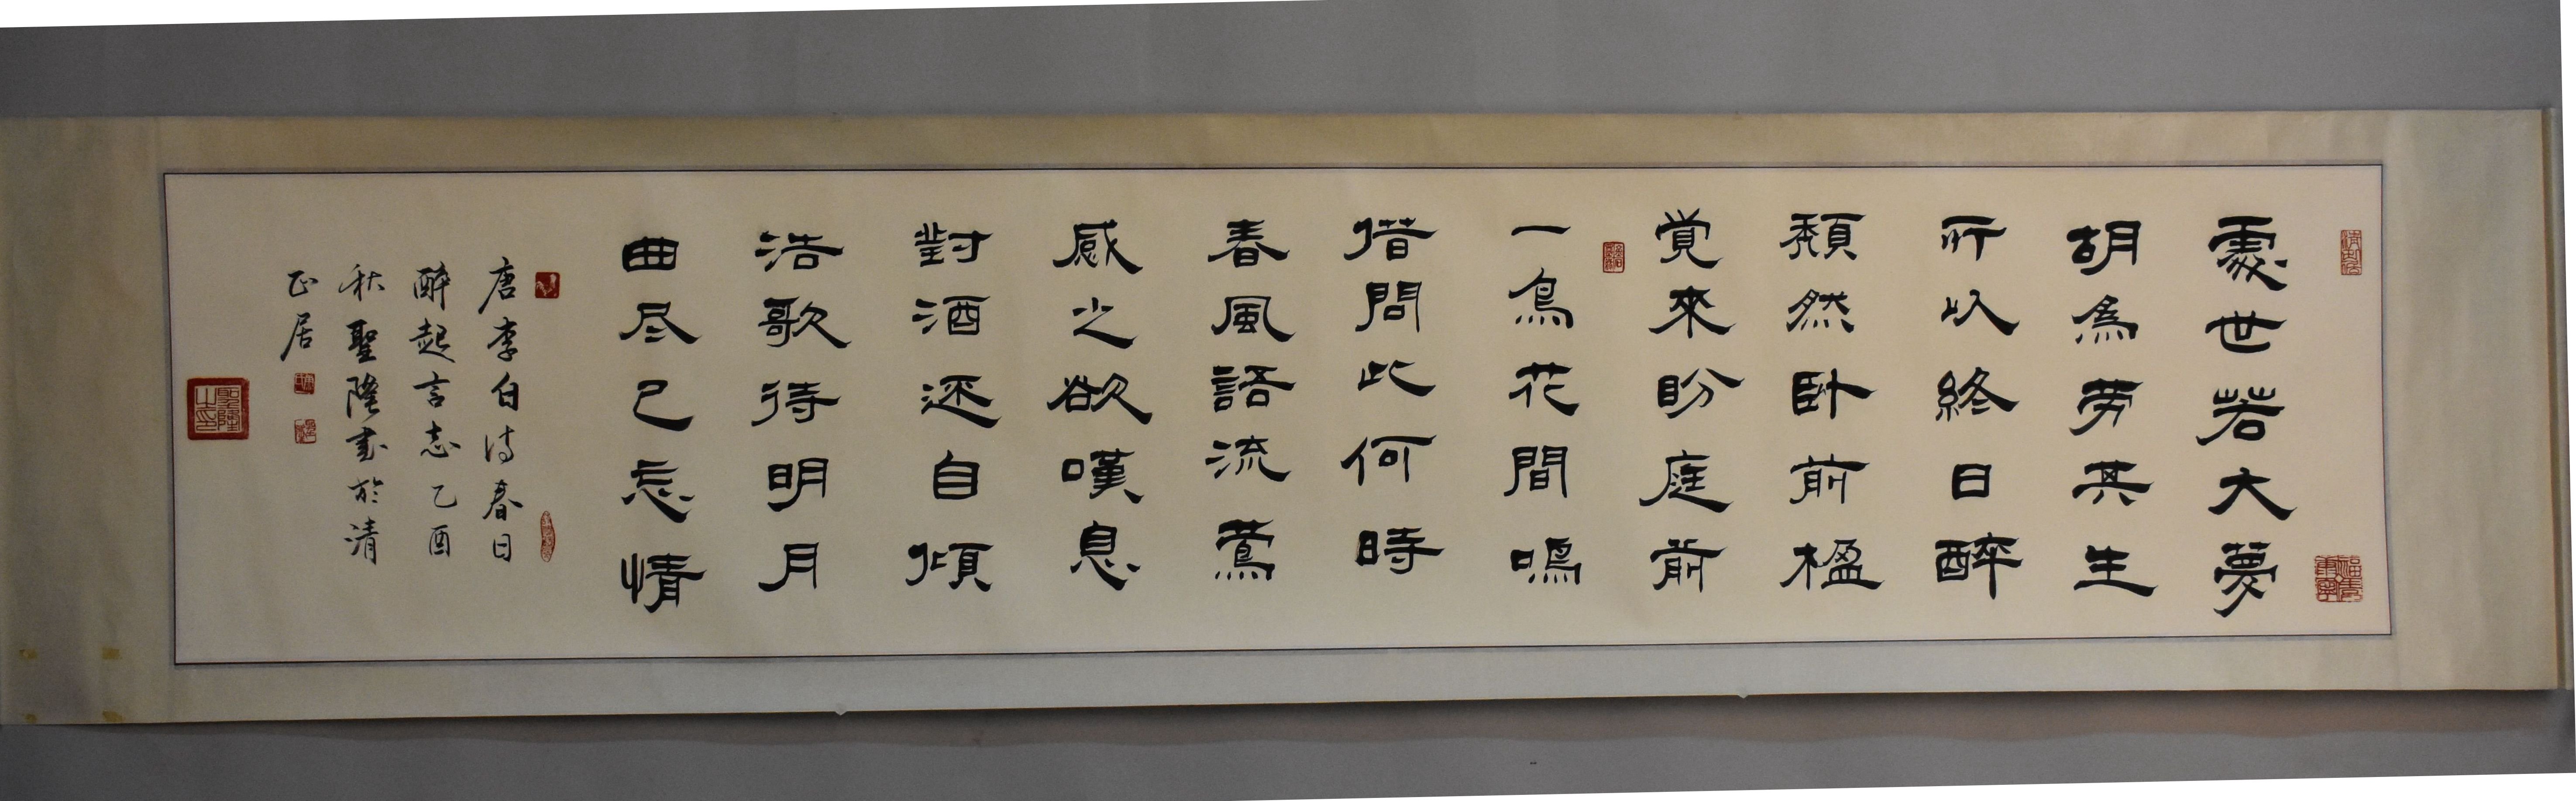 處世若大夢
胡為勞其生
所以終日醉
頹然臥前楹
覚來盼庭前
一鳥花間鳴
借問此何時
春風語流鶯
感之欲嘆息
對酒還自傾
浩歌待明月
曲尽已忘情
唐李白诗春日
醉起言志乙酉
秋聖隆书於清
正居
聖隆之印